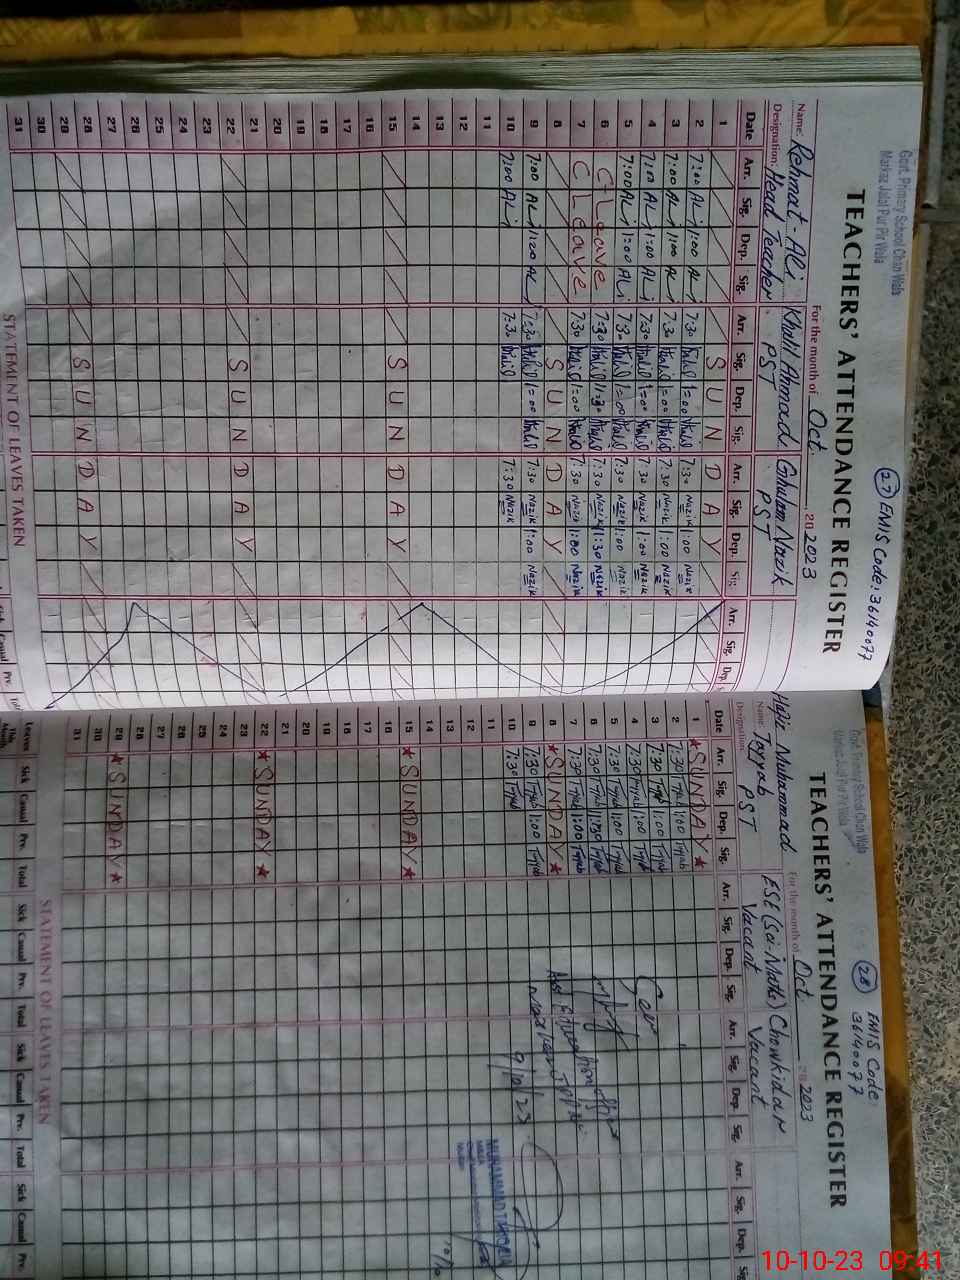 Govt. Primary School Chan Wala
Markaz Jalal Pur Pir Wala
27 EMIS Code: 36140077
TEACHERS' ATTENDANCE REGISTER
For the month of Oct. 20 2023
Name: Rehmat-Ali Khalil Ahmad Ghulam Nazik
Designation: Head Teacher PST PST
Date Arr. Sig. Dep. Sig. Arr. Sig. Dep. Sig. Arr. Sig. Dep. Sig. Arr. Sig. Dep. S
1 S U N D A Y
2 7:00 ALi 1:00 ALi 7:30 Khalil 1:00 Khalil 7:30 Nazik 1:00 Nazik
3 7:00 ALi 1:00 ALi 7:30 Khalil 1:00 Khalil 7:30 Nazik 1:00 Nazik
4 7:00 ALi 1:00 ALi 7:30 Khalil 1:00 Khalil 7:30 Nazik 1:00 Nazik
5 7:00 ALi 1:00 ALi 7:30 Khalil 1:00 Khalil 7:30 Nazik 1:00 Nazik
6 C Leave 7:30 Khalil 11:30 Khalil 7:30 Nazik 11:30 Nazik
7 C Leave 7:30 Khalil 1:00 Khalil 7:30 Nazik 1:00 Nazik
8 S U N D A Y
9 7:00 ALi 1:20 ALi 7:30 Khalil 1:00 Khalil 7:30 Nazik 1:00 Nazik
10 7:00 ALi 7:30 Khalil 7:30 Nazik
11
12
13
14
15 S U N D A Y
16
17
18
19
20
21
22 S U N D A Y
23
24
25
26
27
28 S U N D A Y
29
30
31
STATEMENT OF LEAVES TAKEN
Govt. Primary School Chan Wala
Markaz Jalal Pur Pir Wala
28 EMIS Code:
36140077
TEACHERS' ATTENDANCE REGISTER
For the month of Oct 20 2023
Name: Hafiz Muhammad Tayyab ESE (Sci-Maths) Chowkidar
Designation: PST Vacant Vacant
Date Arr. Sig. Dep. Sig. Arr. Sig. Dep. Sig. Arr. Sig. Dep. Sig. Arr. Sig. Dep. Sig
1 ★ SUNDAY ★
2 7:30 Tayyab 1:00 Tayyab
3 7:30 Tayyab 1:00 Tayyab
4 7:30 Tayyab 1:00 Tayyab
5 7:30 Tayyab 1:00 Tayyab
6 7:30 Tayyab 11:30 Tayyab
7 7:30 Tayyab 1:00 Tayyab
8 ★ SUNDAY ★
9 7:30 Tayyab 1:00 Tayyab
10 7:30 Tayyab
11
12
13
14
15 ★ SUNDAY ★
16
17
18
19
20
21
22 ★ SUNDAY ★
23
24
25
26
27
28
29 ★ SUNDAY ★
30
31
9/10/23
MUHAMMAD
10/10
STATEMENT OF LEAVES TAKEN
Leaves Sick Casual Prv. Total Sick Casual Prv. Total Sick Casual Prv. Total Sick Casual Prv.
10-10-23 09:41